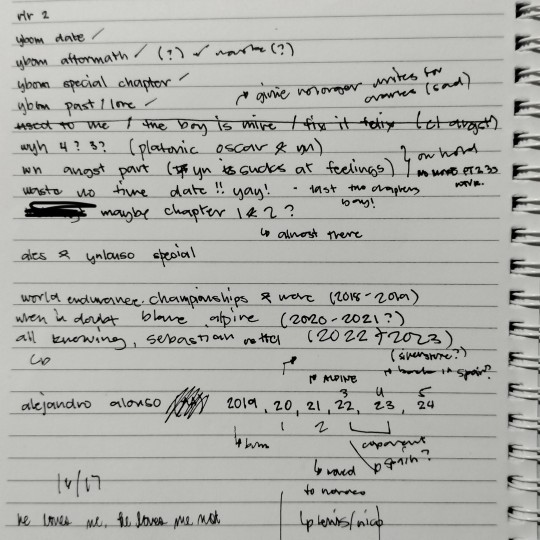 rlr 2
ybom date ✓
ybom aftermath ✓ (?) ✓ (?)
ybom special chapter ✓
ybom past / lore ✓
↱ givie no longer writes for (sad)
used to me / the boy is mine / fix it felix (cl angst)
wyh 4? 3? (platonic oscar & yn)
wn angst part (yn sucks at feelings)
on hold
no more pt 2 33 work.
waste no time date!! yay! - last two chapters baby!
maybe chapter 1 & 2?
↳ almost there
ales & ynlonso special
world endurance championships & more (2018-2019)
when in doubt blame alpine (2020-2021?)
all knowing, sebastian vettel (2022 + 2023)
(silverstone?)
ALPINE
3 4 5
alejandro alonso 2019, 20, 21, 22, 23, 24
1 2
↳ moved to monaco
14/17
he loves me, he loves me not